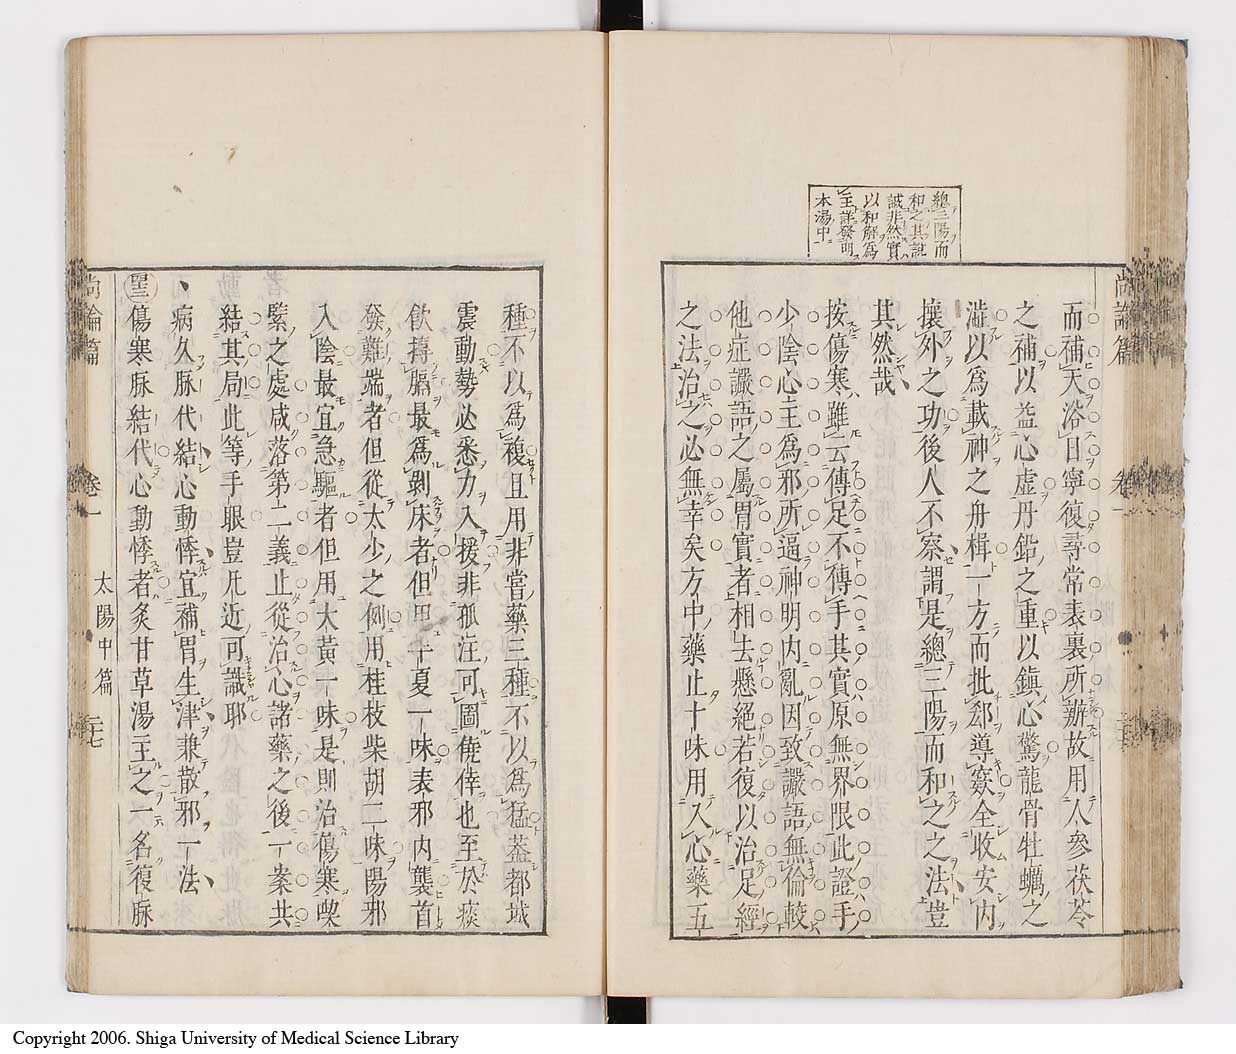 總三陽而
和之其說
誠非然實
以和解爲
主詳發明
本湯中
尚論篇
卷一
而補天浴日寧復尋常表裏所辨故用人參茯苓
之補以益心虛丹鉛之重以鎭心驚龍骨牡蠣之
澁以爲載神之舟楫一方而批郄導窾全收安內
攘外之功後人不察謂是總三陽而和之之法豈
其然哉
按傷寒雖云傳足不傳手其實原無界限此證手
少陰心主爲邪所逼神明內亂因致讝語無倫較
他症讝語之屬胃實者相去懸絕若復以治足經
之法治之必無幸矣方中藥止十味用入心藥五
種不以爲複且用非嘗藥三種不以爲猛蓋都城
震動勢必悉力入援非孤注可圖僥倖也至於痰
飮摶膈最爲剝床者但用半夏一味表邪內襲首
發難端者但從太少之例用桂枝柴胡二味陽邪
入陰最宜急驅者但用大黃一味是則治傷寒喫
緊之處咸落第二義止從治心諸藥之後一案共
結其局此等手眼豈凡近可識耶
病久脉代結心動悸宜補胃生津兼散邪一法
傷寒脉結代心動悸者炙甘草湯主之一名復脉
尚論篇
卷一
太陽中篇
二十七